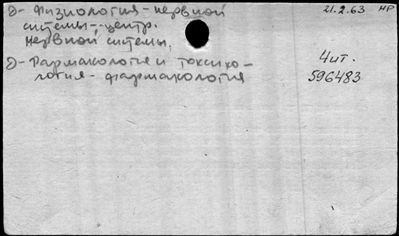 Д - Физиология - нервной
системы - центр.
нервной системы.
Д - Фармакология и токсико-
логия - фармакология
21.2.63 НР
Чит.
596483